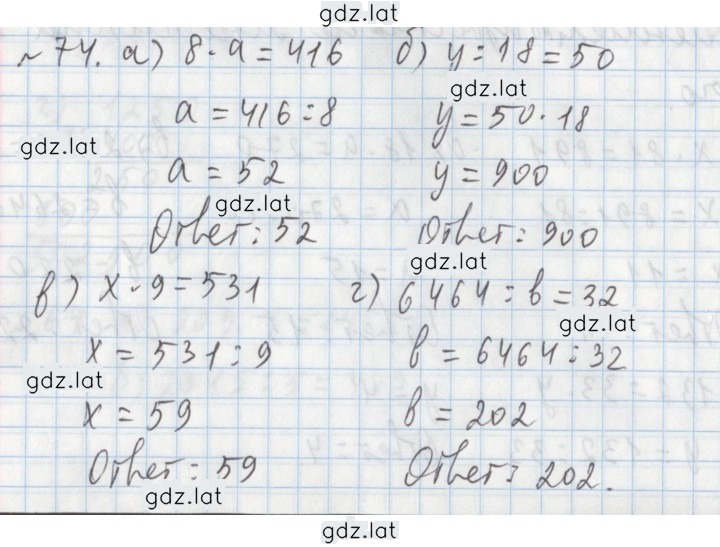 gdz.lat
№ 74. а) 8 · а = 416
а = 416 : 8
а = 52
Ответ: 52
б) у : 18 = 50
у = 50 · 18
у = 900
Ответ: 900
в) х · 9 = 531
х = 531 : 9
х = 59
Ответ: 59
г) 6464 : в = 32
в = 6464 : 32
в = 202
Ответ: 202.
gdz.lat
gdz.lat
gdz.lat
gdz.lat
gdz.lat
gdz.lat
gdz.lat
gdz.lat